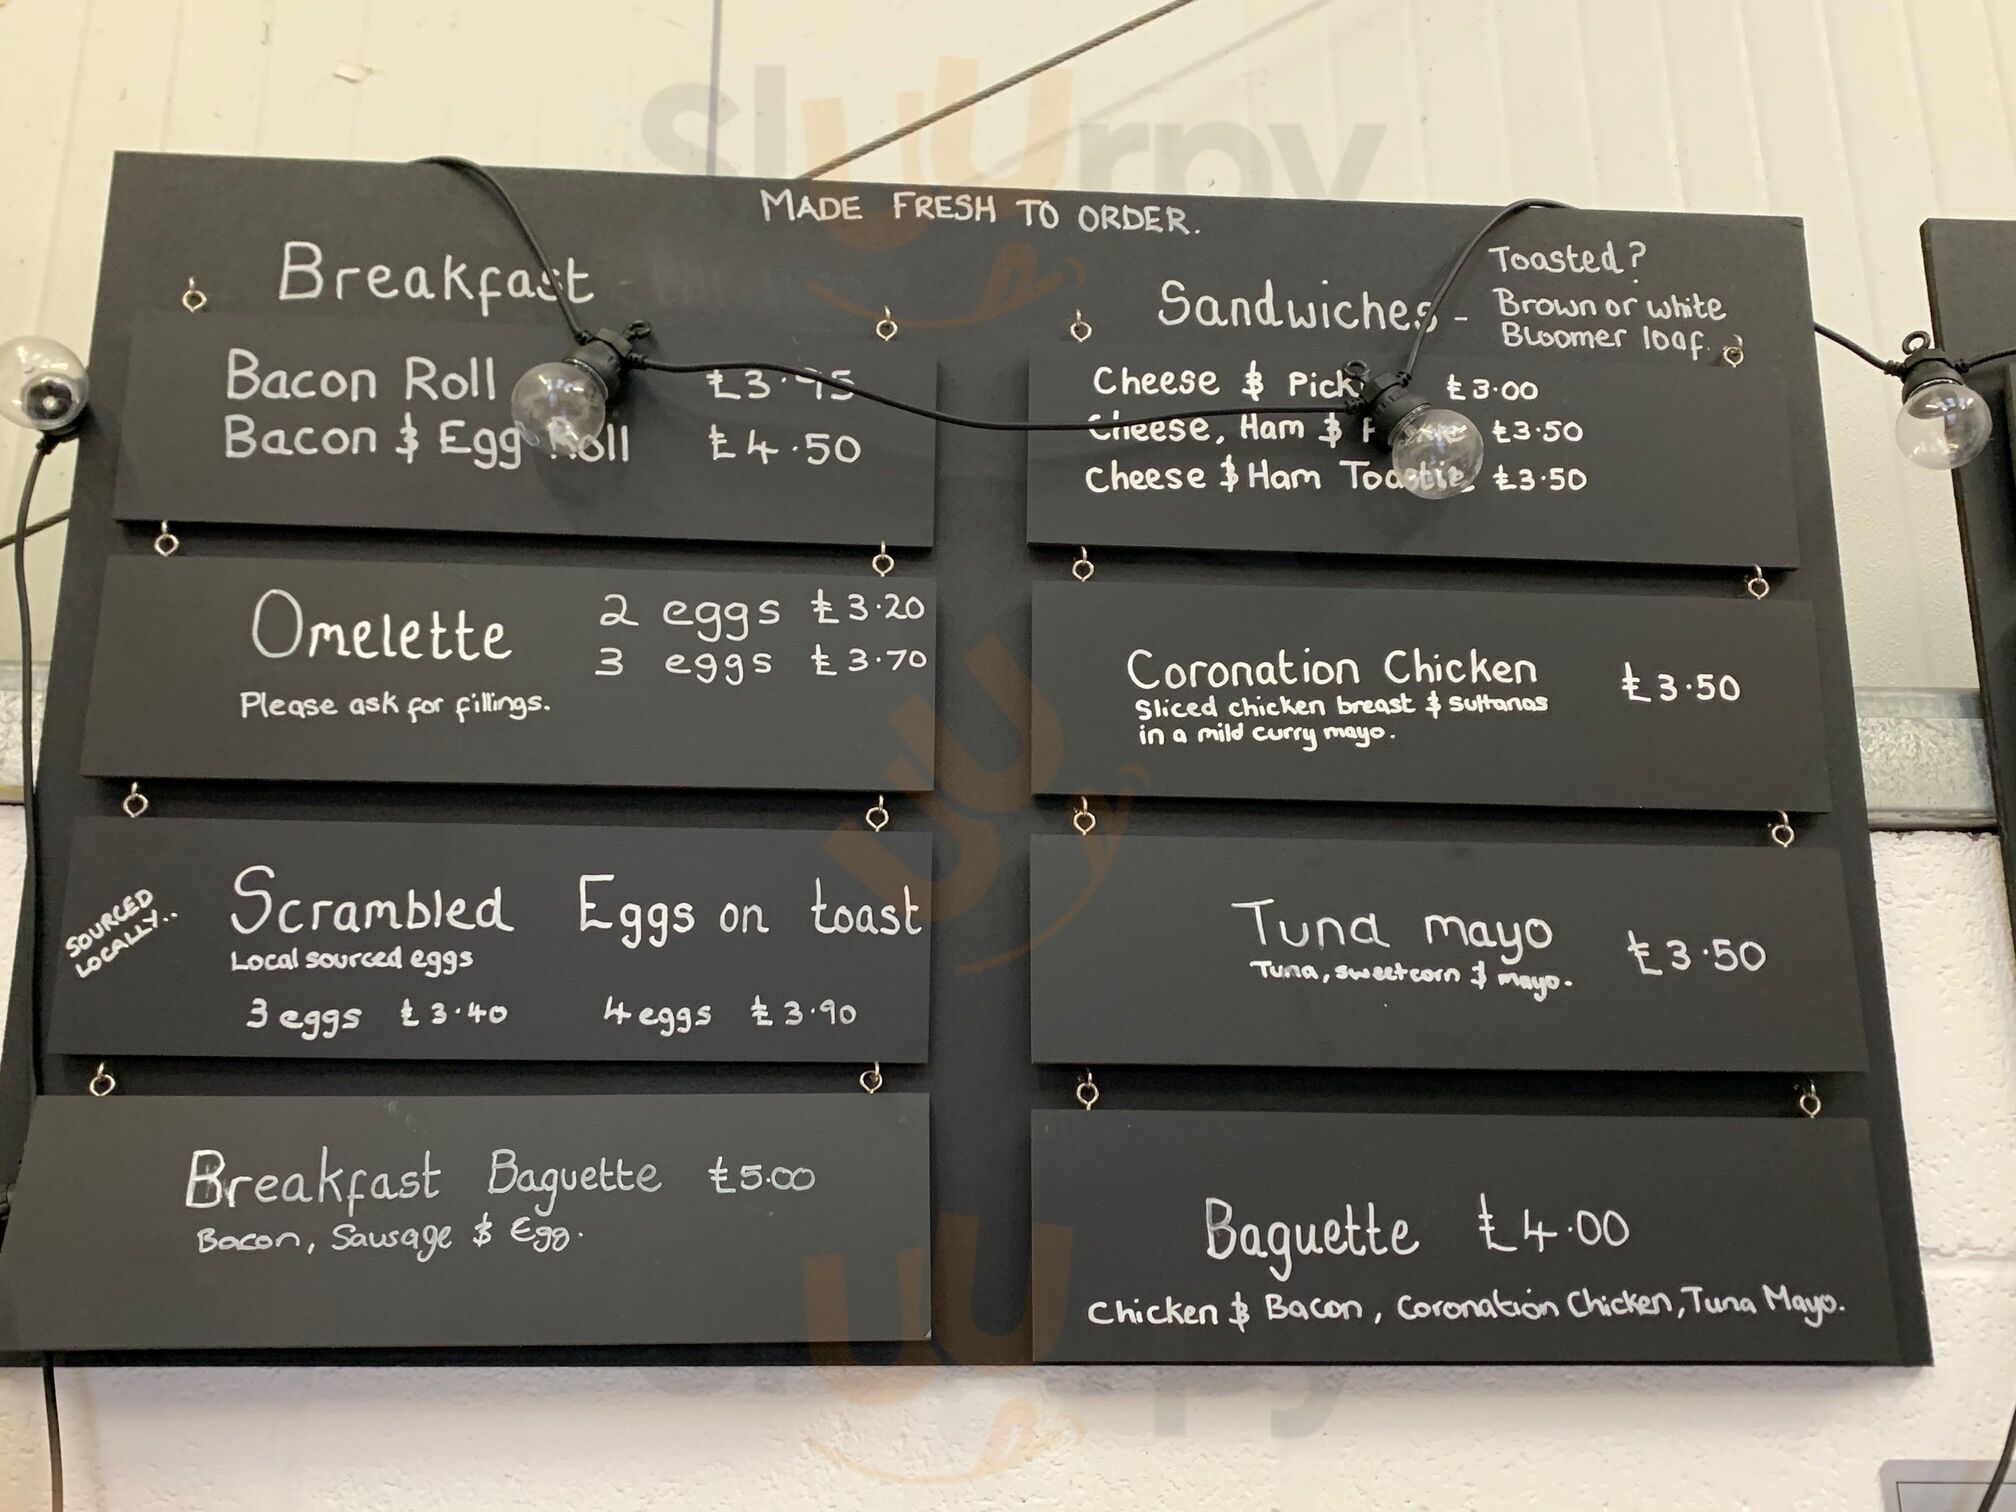 MADE FRESH TO ORDER.
Breakfast
Bacon Roll
Bacon & Egg Roll £4.50
Omelette
2 eggs £3.20
3 eggs £3.70
Please ask for fillings.
SOURCED
LOCALLY..
Scrambled Eggs on toast
Local sourced eggs
3 eggs £3.40 4 eggs £3.90
Breakfast Baguette £5.00
Bacon, Sausage & Egg.
Sandwiches -
Toasted?
Brown or white
Bloomer loaf.
Cheese & £3.00
Cheese, Ham & £3.50
Cheese & Ham Toastie £3.50
Coronation Chicken £3.50
Sliced chicken breast & sultanas
in a mild curry mayo.
Tuna mayo £3.50
Tuna, sweetcorn & mayo.
Baguette £4.00
Chicken & Bacon, Coronation Chicken, Tuna Mayo.
sluurpy
sluurpy